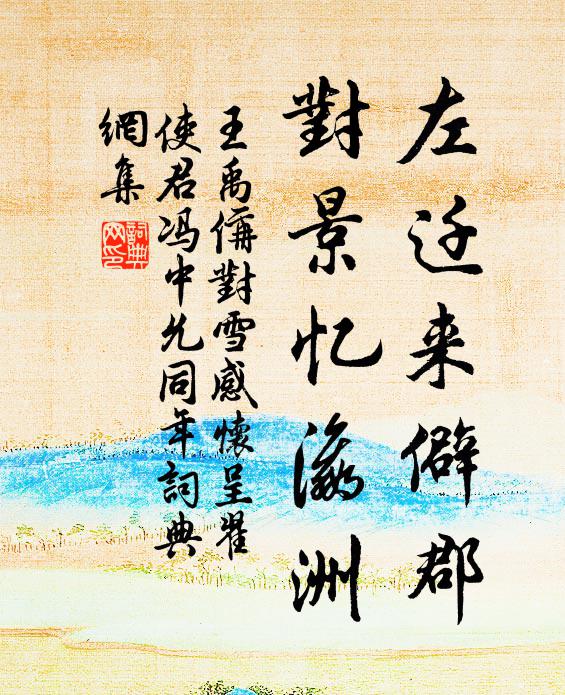 左迁来僻郡
對景忆瀛洲
王禹偁對雪感懷呈翟
使君冯中允同年詞典
網集
詞典
网印